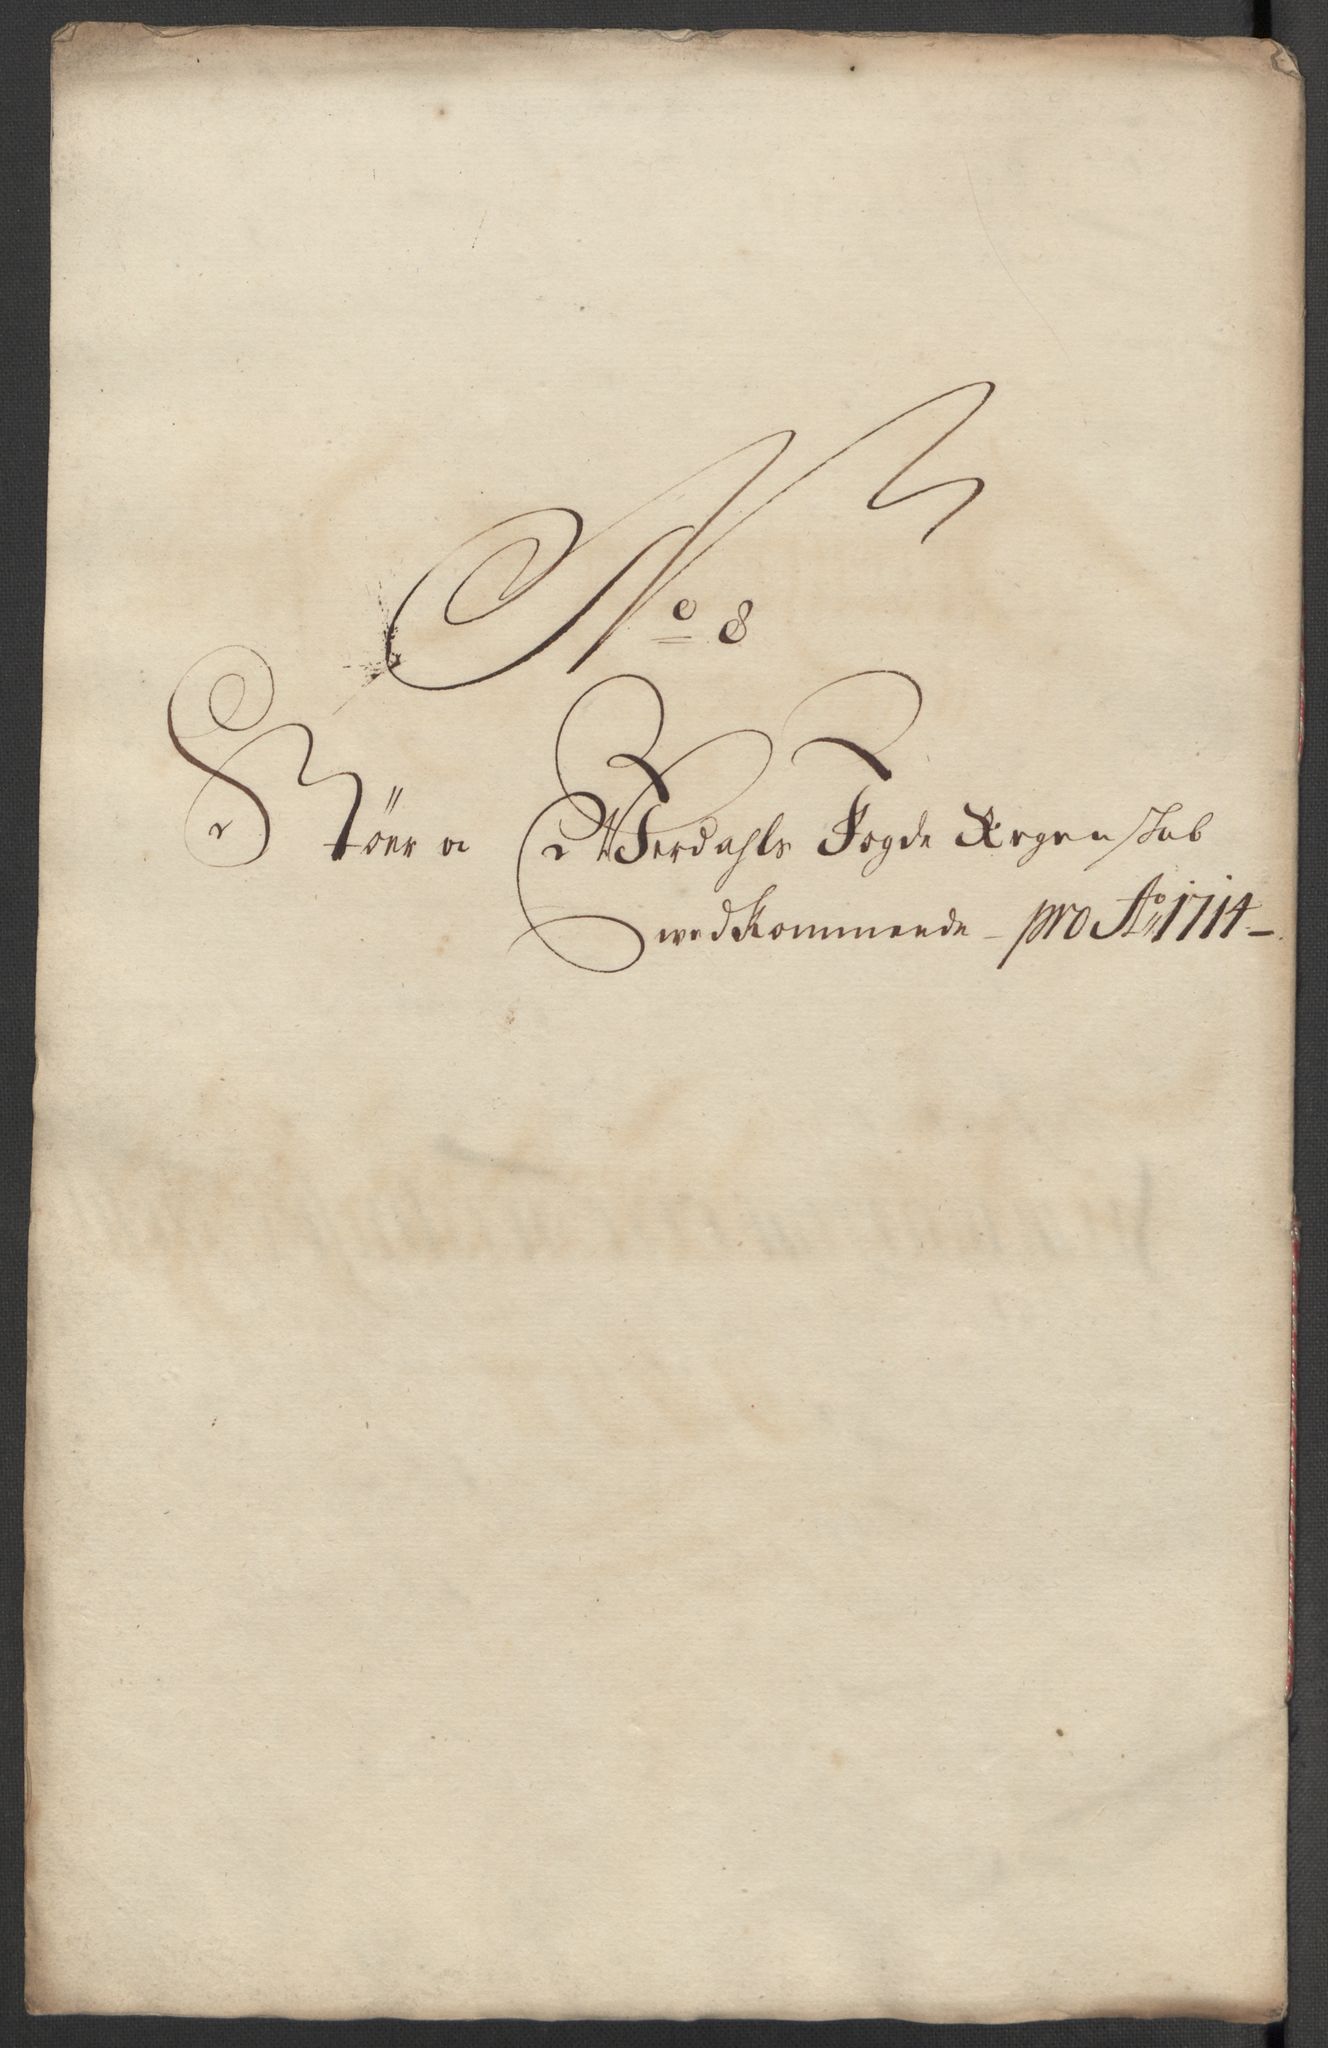 No 8
Støer oc Werdahls Fogde Regenskab
wedkommende - pro Ao 1714 -